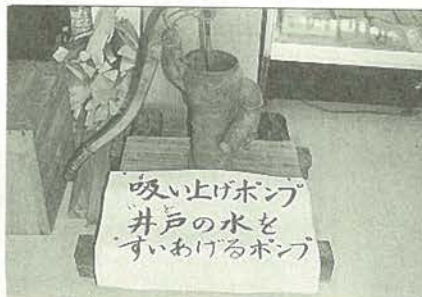 吸い上げポンプ
井戸の水を
すいあげるポンプ